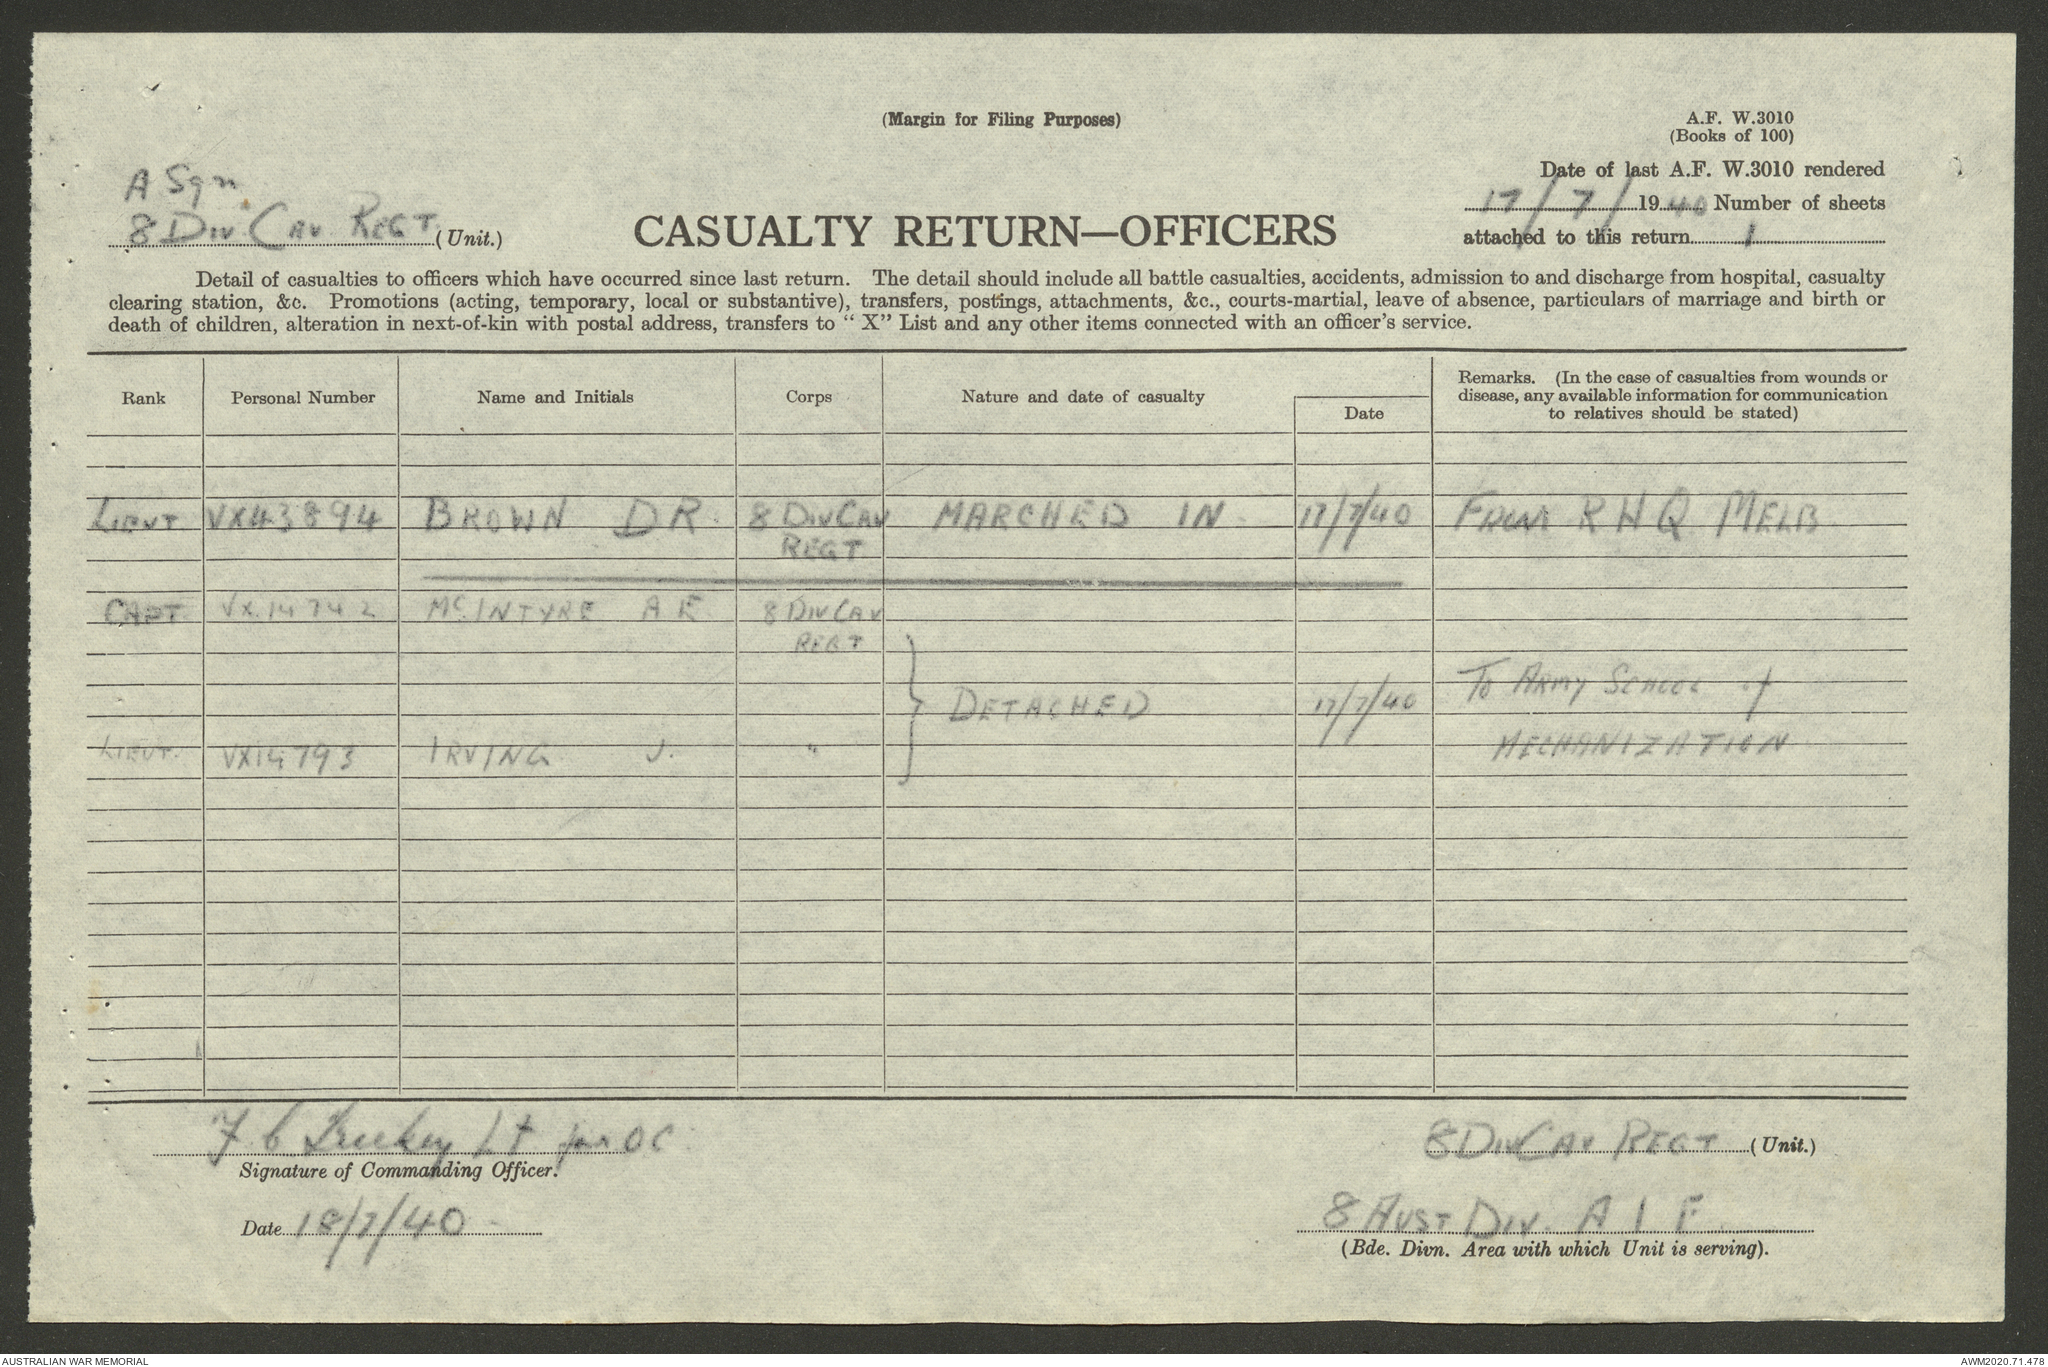 (Margin for Filing Purposes)
A.F. W.3010
(Books of 100)
Date of last A.F. W.3010 rendered
17/7/1940 Number of sheets
attached to this return 1
A Sqn
8 DIV CAV REGT (Unit.)
CASUALTY RETURN—OFFICERS
Detail of casualties to officers which have occurred since last return. The detail should include all battle casualties, accidents, admission to and discharge from hospital, casualty
clearing station, &c. Promotions (acting, temporary, local or substantive), transfers, postings, attachments, &c., courts-martial, leave of absence, particulars of marriage and birth or
death of children, alteration in next-of-kin with postal address, transfers to "X" List and any other items connected with an officer's service.
Rank Personal Number Name and Initials Corps Nature and date of casualty Date
Remarks. (In the case of casualties from wounds or
disease, any available information for communication
to relatives should be stated)
LIEUT VX43894 BROWN DR 8 DIV CAV MARCHED IN 17/7/40 FROM R H Q MELB
REGT
CAPT. VX14742 McINTYRE A E 8 DIV CAV
REGT
DETACHED 17/7/40 TO ARMY SCHOOL of
LIEUT. VX14793 IRVING J. " MECHANIZATION
F C Lt for OC
Signature of Commanding Officer.
8 DIV CAV REGT (Unit.)
Date 18/7/40
8 AUST DIV. A I F
(Bde. Divn. Area with which Unit is serving).
AUSTRALIAN WAR MEMORIAL
AWM2020.71.478